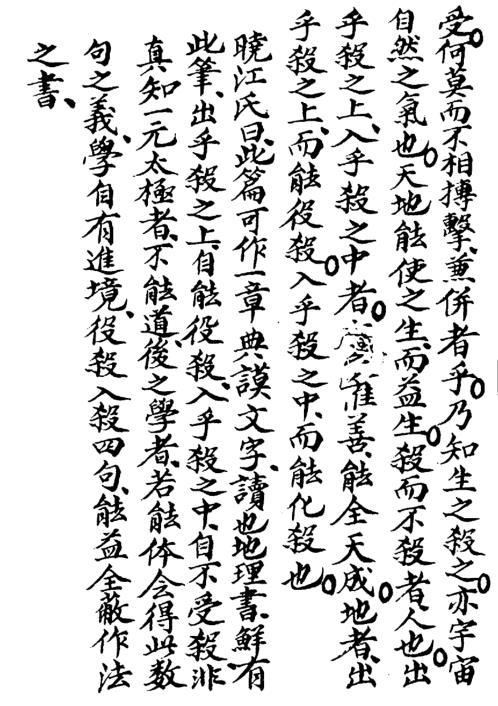 受。何莫而不相搏擊、兼併者乎。乃知生之殺之。亦宇宙
自然之氣也。天地能使之生、而益生。殺而不殺者、人也。出
乎殺之上、入乎殺之中者。惟善、能全天、成地者、出
乎殺之上、而能役殺。入乎殺之中、而能化殺也。
曉江氏曰、此篇可作一章典謨文字、讀也地理書、鮮有
此筆、出乎殺之上、自能役殺、入乎殺之中、自不受殺、非
真知一元太極者、不能道、後之學者、若能体会得此数
句之義、學自有進境、役殺入殺四句、能益全蔽作法
之書、